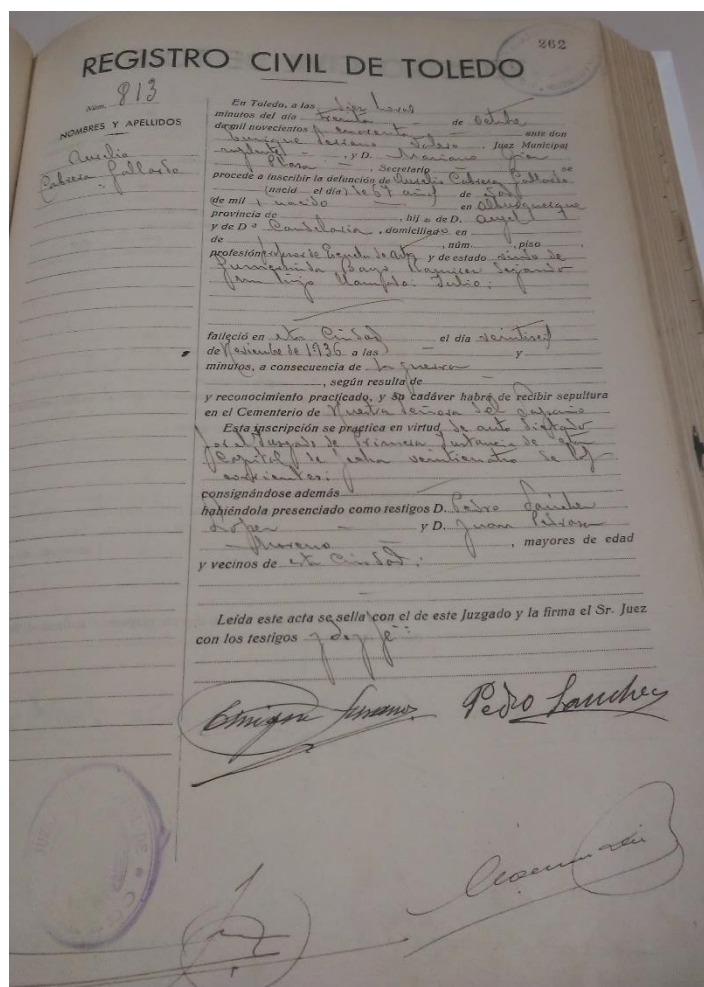 262
REGISTRO CIVIL DE TOLEDO
Núm. 813
NOMBRES Y APELLIDOS
Aurelio
Cabrera Gallardo
En Toledo, a las diez horas
minutos del día treinta de Octubre
de mil novecientos cuarenta ante don
Enrique Serrano , Juez Municipal
suplente , y D. Mariano
, Secretario se
procede a inscribir la defunción de Aurelio Cabrera Gallardo
(nacid el día) de 67 años de
de mil , nacido en Alburquerque
provincia de , hijo de D. Angel
y de Dª Candelaria , domiciliado en
de , núm. , piso
profesión profesor de Escuela de Artes y de estado viudo de
dejando
un hijo llamado: Julio.
falleció en esta Ciudad el día veintiseis
de Noviembre de 1936 a las y
minutos, a consecuencia de la guerra
, según resulta de
y reconocimiento practicado, y su cadáver habrá de recibir sepultura
en el Cementerio de Nuestra Señora del Sagrario
Esta inscripción se practica en virtud de auto dictado
por el Juzgado de Primera Instancia de esta
Capital de fecha veinticuatro de los
corrientes.
consignándose además
habiéndola presenciado como testigos D. Pedro Sánchez
López y D. Juan Pedraza
Moreno , mayores de edad
y vecinos de esta Ciudad.
Leída este acta se sella con el de este Juzgado y la firma el Sr. Juez
con los testigos y doy fé
Enrique Serrano Pedro Sanchez